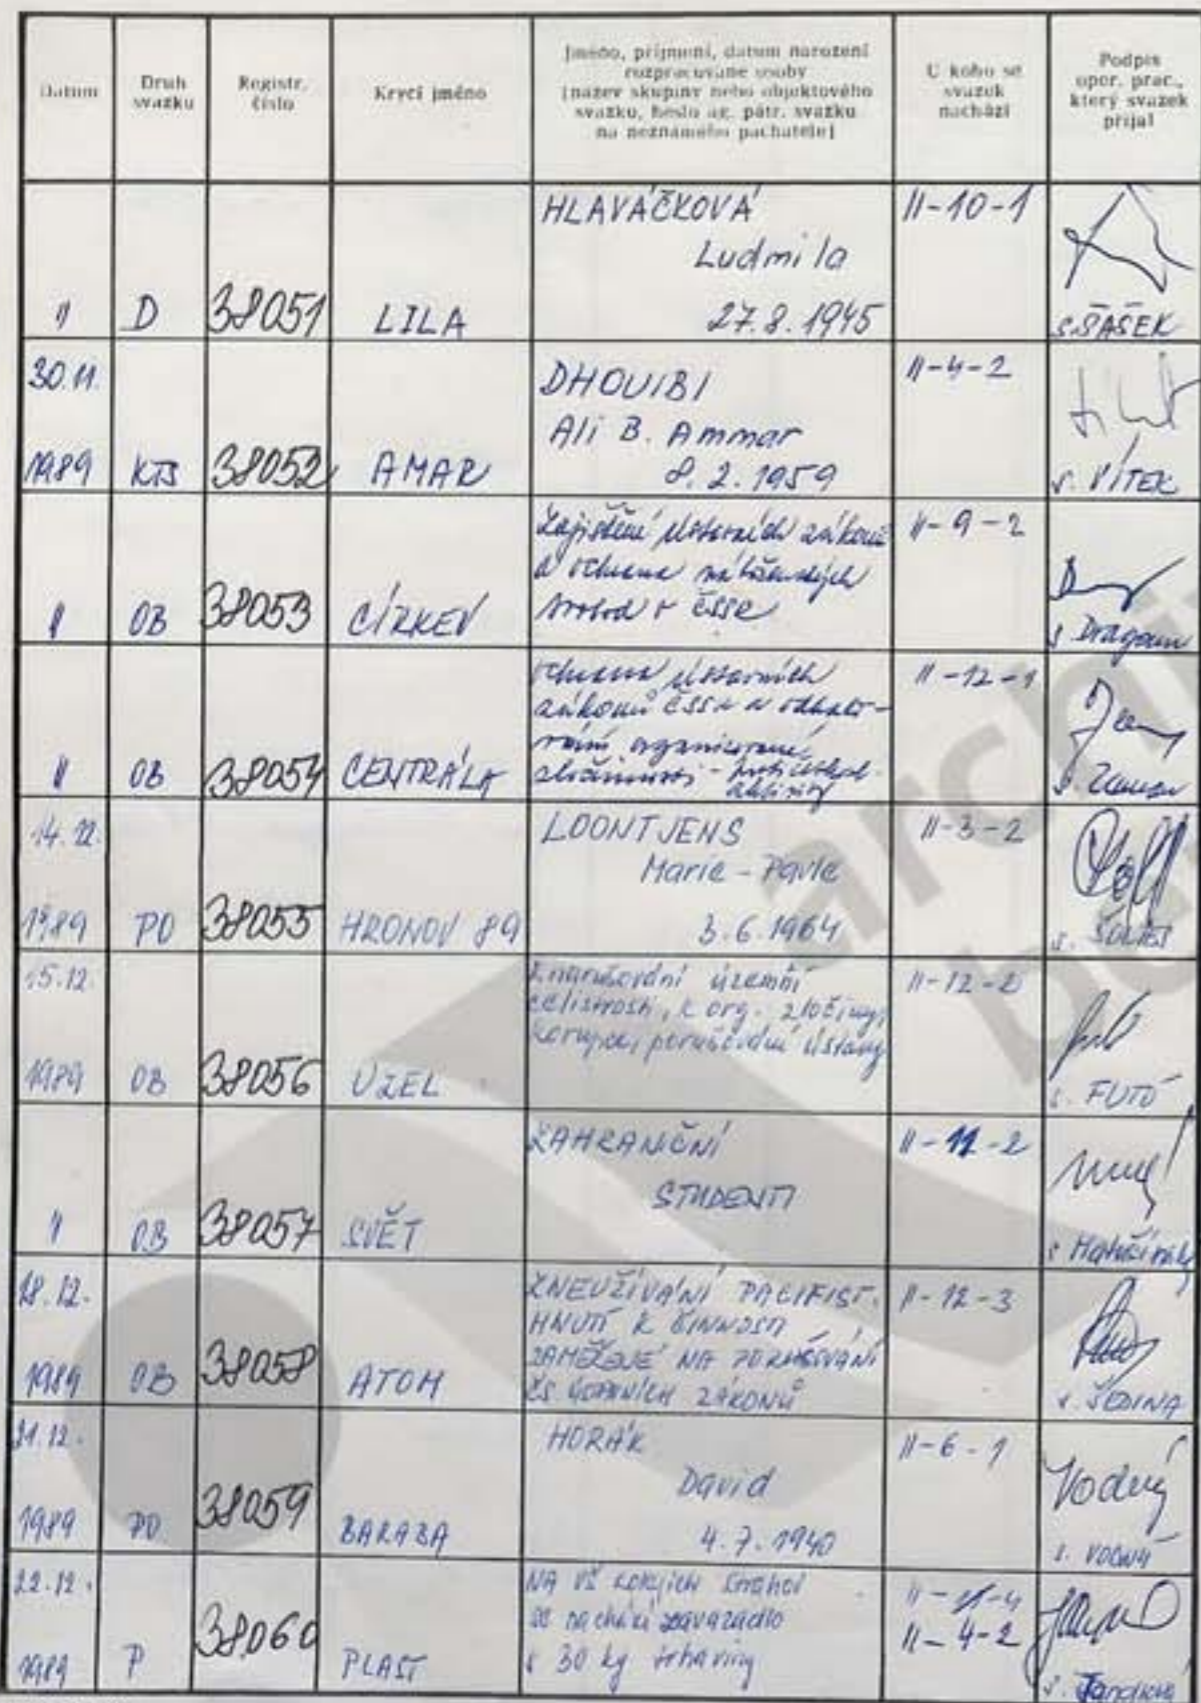 Datum
Druh
svazku
Registr.
číslo
Krycí jméno
Jméno, příjmení, datum narození
rozpracované osoby
(název skupiny nebo objektového
svazku, heslo ag. pátr. svazku
na neznámého pachatele)
U koho se
svazek
nachází
Podpis
oper. prac.,
který svazek
přijal
HLAVÁČKOVÁ
Ludmila
27.8.1945
" D 38051 LILA
II-10-1
s. ŠAŠEK
30.11.
1989 KTS 38052 AMAR
DHOUIBI
Ali B. Ammar
8.2.1959
II-4-2
s. VÍTEK
" OB 38053 CÍRKEV
Zajištění ústavních zákonů
a ochrana náboženských
svobod v ČSSR
II-9-2
s. Dragoun
" OB 38054 CENTRÁLA
Ochrana ústavních
zákonů ČSSR a odhalo-
vání organizované
II-12-1
s.
14.12.
1989 PO 38055 HRONOV 89
LOONTJENS
Marie-Pavle
3.6.1964
II-3-2
s.
15.12.
1989 OB 38056 UZEL
území
celistvosti, k org. zločinu,
korupce, porušování ústavy
II-12-2
s. FUTÓ
" OB 38057 SVĚT
ZAHRANIČNÍ
STUDENTI
II-11-2
s.
18.12.
1989 OB 38058 ATOM
ZNEUŽÍVÁNÍ PACIFIST.
HNUTÍ K ČINNOSTI
ZAMĚŘENÉ NA PORUŠOVÁNÍ
ČS ÚSTAVNÍCH ZÁKONŮ
II-12-3
s. ŠEDINA
21.12.
1989 PO 38059 BARABA
HORÁK
David
4.7.1940
II-6-1
Vodný
s. VODNÝ
22.12.
1989 P 38060 PLAST
NA VŠ kolejích Strahov
se nachází zavazadlo
s 30 kg trhaviny
II-11-4
II-4-2
s.